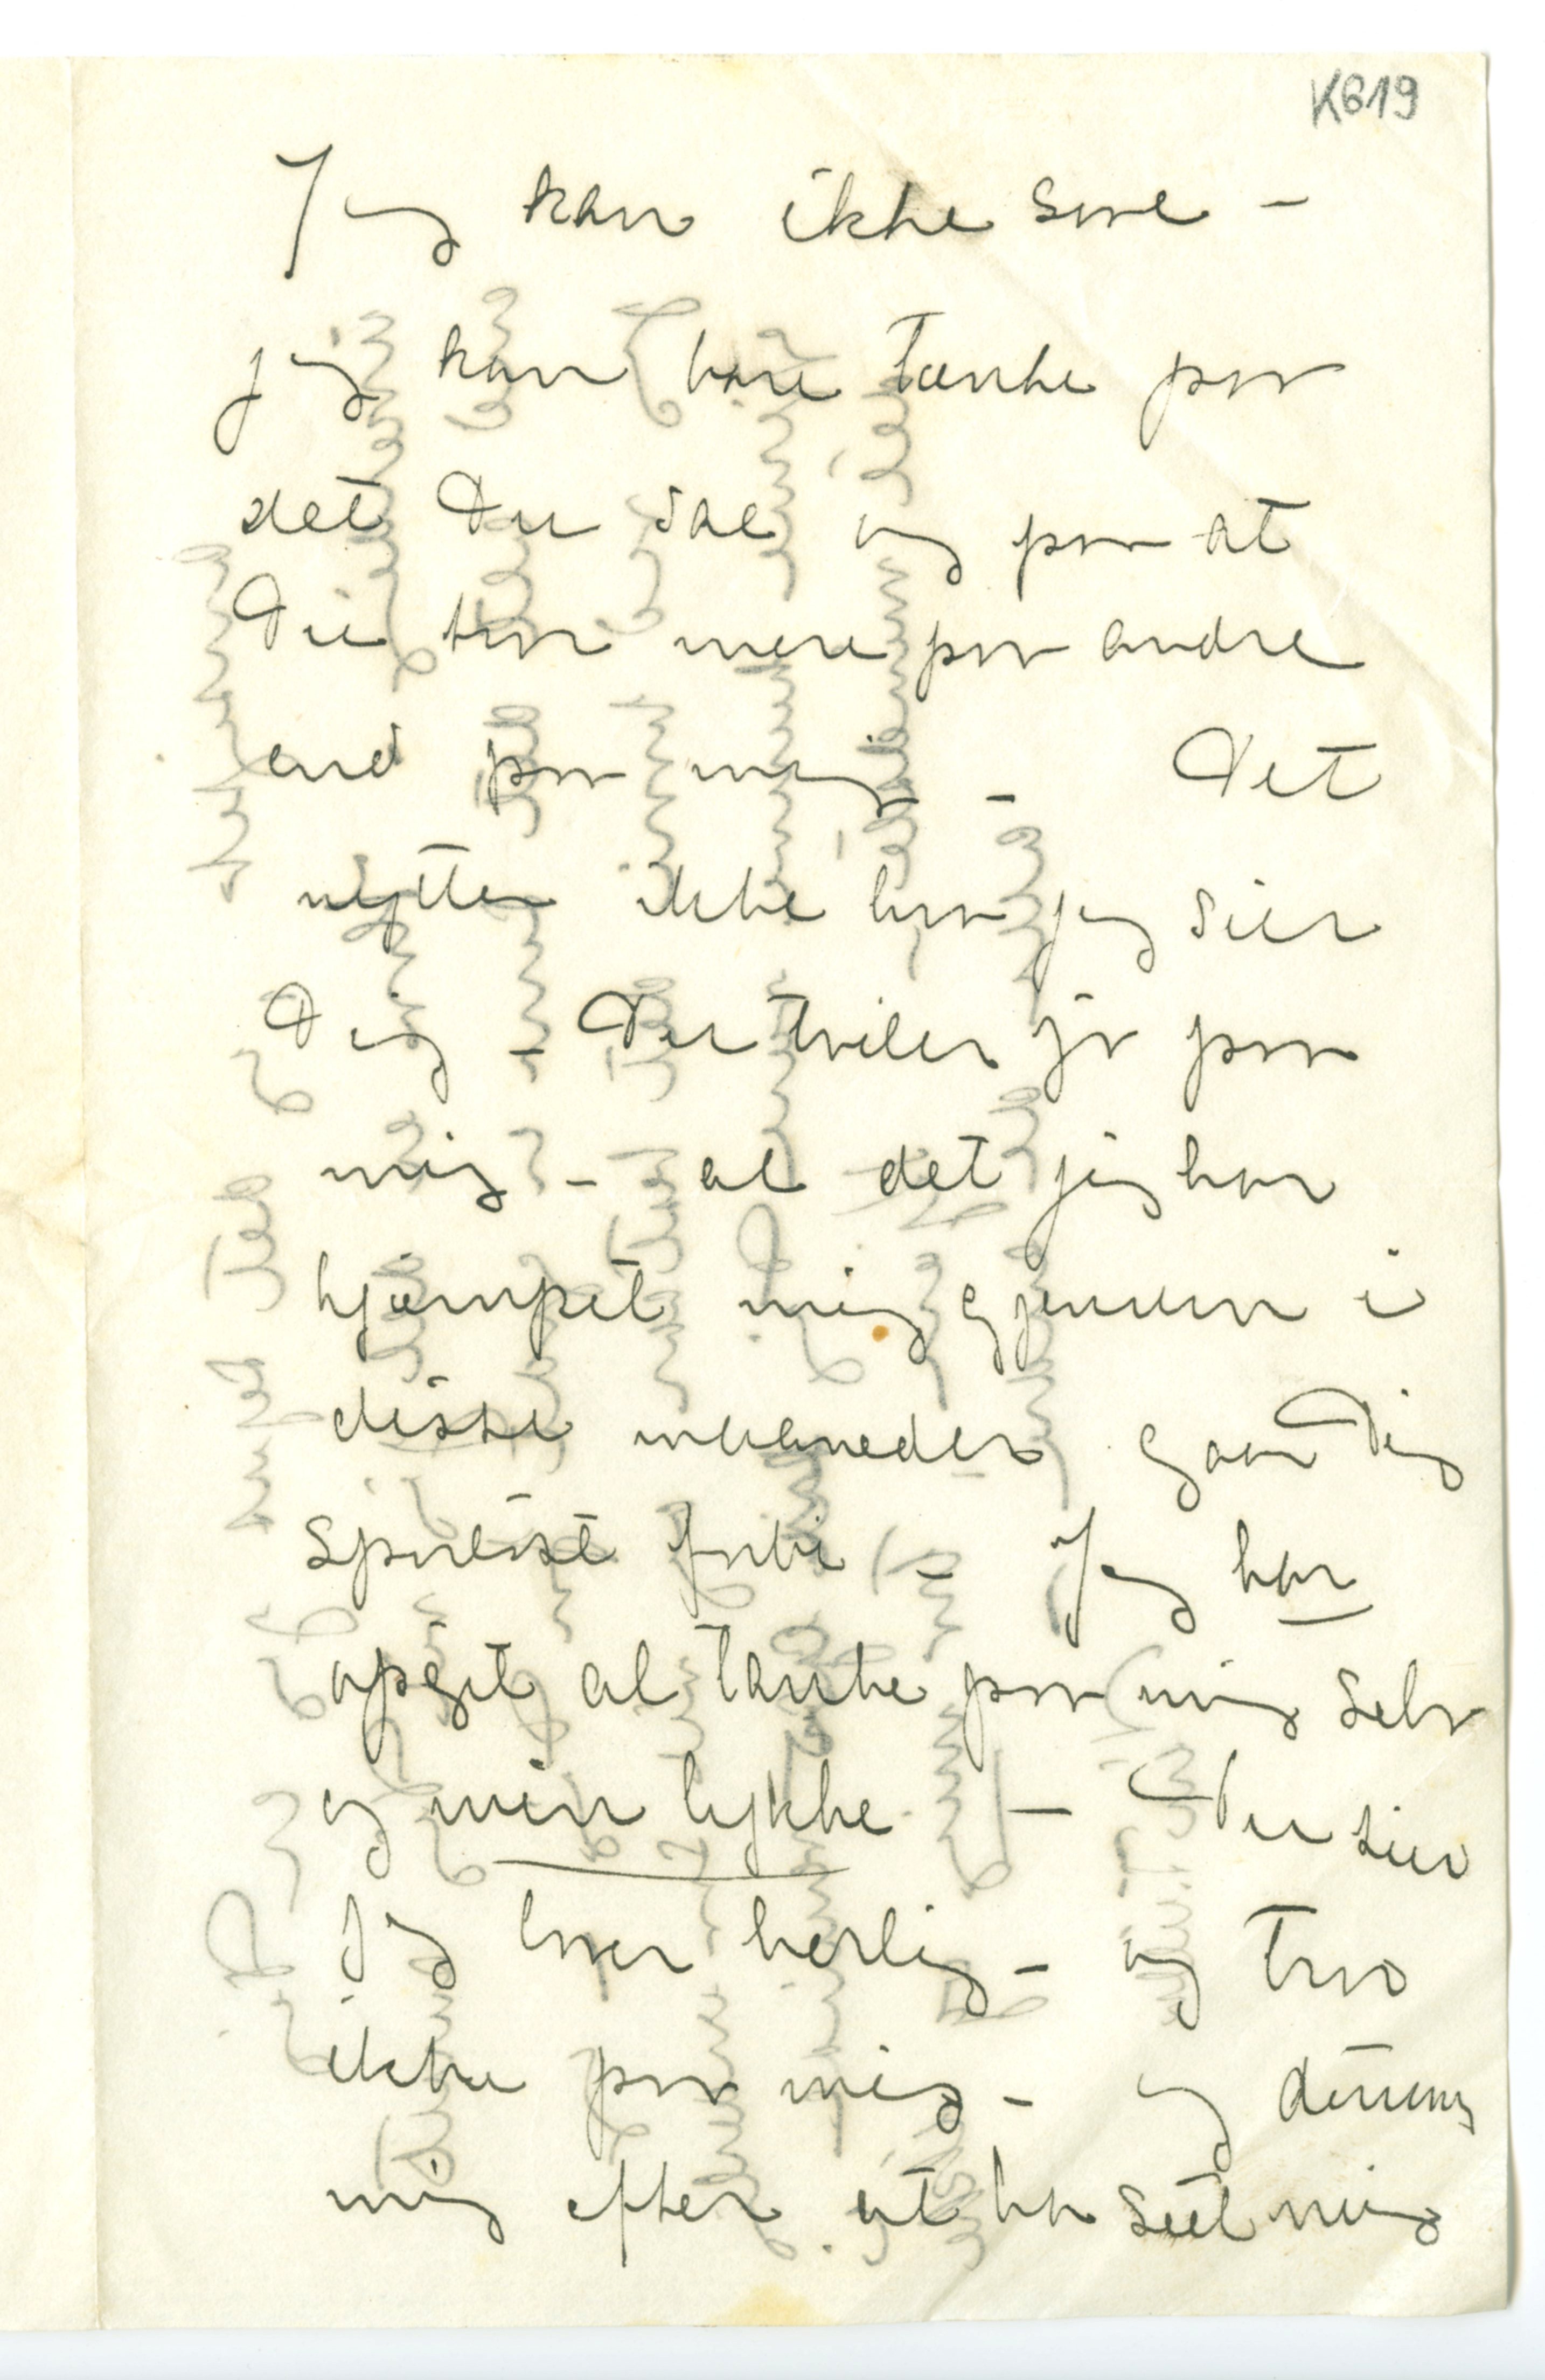 K619
Jeg kan ikke sove –
jeg kan bare tænke paa
det Du sae og paa at
Du tror mere paa andre
end paa mig – Det
nytter ikke hva jeg sier
Dig – Du tviler jo paa
mig – al det jeg har
kjæmpet mig gjennem i
disse maaneder gaar Dig
sporløst forbi – Jeg har
opgit al tanke paa mig selv
og min lykke – Du sier
jeg lever herlig – og tror
ikke paa mig – og dømmer
mig efter at ha seet mig